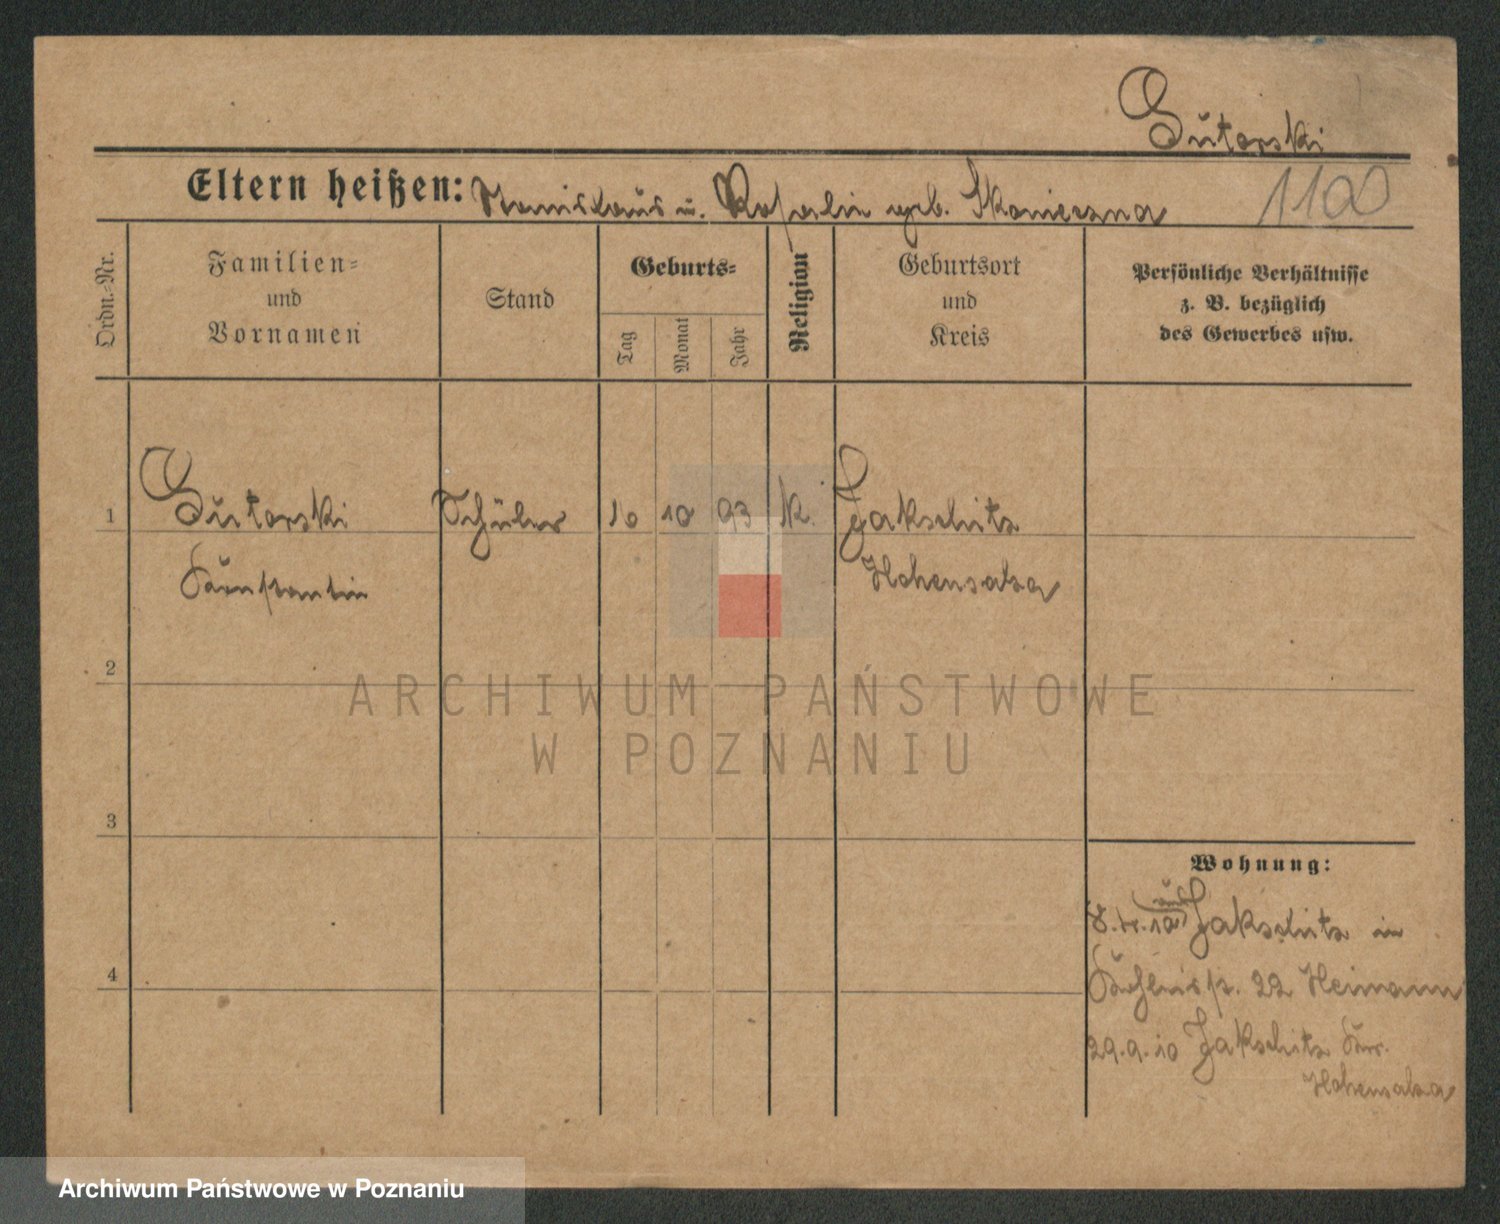 Sutorski
Eltern heißen: Stanislaus u. Rosalie geb. Skonieczna
1100
Ordn.-Nr.
Familien-
und
Vornamen
Stand
Geburts-
Tag
Monat
Jahr
Religion
Geburtsort
und
Kreis
Persönliche Verhältnisse
z. B. bezüglich
des Gewerbes usw.
1
Sutorski Schüler 16 10 93 k. Jakschitz
Konstantin Hohensalza
2
3
4
Wohnung:
aus Jakschitz in
22 Heimann
29.9.10 Jakschitz Krs.
Hohensalza
ARCHIWUM PAŃSTWOWE
W POZNANIU
Archiwum Państwowe w Poznaniu